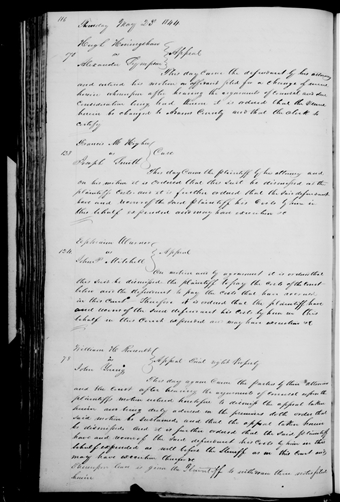 116
Thursday May 23d 1844
Hugh
190 vs Appeal
Alexander Simpson
This day came the defendant by his attorney
and entered his motion and affidavit filed for a change of venue
herein whereupon after hearing the argument of counsel and due
consideration being had therein it is ordered that the venue
herein be changed to Adams County and that the clerk to
certify
Francis M. Higbee
138 Case
Joseph Smith
This day came the plaintiff by his attorney and
on his motion it is ordered that this suit be dismissed at the
plaintiffs costs and it is further ordered that the said defendant
have and recover of the said plaintiff his costs by him in
this behalf expended and may have execution &c
Warner
124 vs Appeal
John P. Mitchell
On motion and by agreement it is ordered that
this suit be dismissed the plaintiff to pay the costs of the
below and the defendant to pay the costs that have accrued
in this Court Therefore it is ordered that the plaintiff have
and recover of the said defendant his costs by him in this
behalf in this Court expended and may have execution &c
William H.
78 vs Appeal Trial right Property
John Young
This day again came the parties by their attornies
and the Court after hearing the arguments of counsel upon the
plaintiffs motion entered heretofore to dismiss the appeal taken
herein and being duly advised in the premises doth order that
said motion be sustained and that the appeal taken herein
be dismissed and it is further ordered that the said plaintiff
have and recover of the said defendant his costs by him in this
behalf expended as well before the as in this Court and
may have execution therefor
Whereupon leave is given the Plaintiff to withdraw
herein